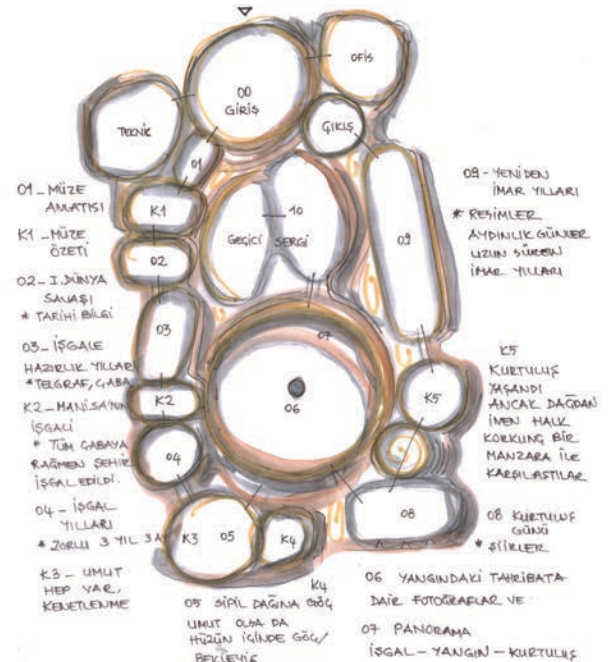 OFİS
00
GİRİŞ
TEKNİK
ÇIKIŞ
01
K1
02
03
K2
04
K3
05
K4
10
GEÇİCİ SERGİ
07
06
09
K5
08
01_MÜZE
ANLATISI
K1_MÜZE
ÖZETİ
02_I.DÜNYA
SAVAŞI
* TARİHİ BİLGİ
03_İŞGALE
HAZIRLIK YILLARI
* TELGRAF, ÇABA
K2_MANİSA'NIN
İŞGALİ
* TÜM ÇABAYA
RAĞMEN ŞEHİR
İŞGAL EDİLDİ.
04_İŞGAL
YILLARI
* ZORLU 3 YIL 3 AY
K3_UMUT
HEP VAR,
KENETLENME
K4
05 SİPİL DAĞINA GÖÇ
UMUT OLSA DA
HÜZÜN İÇİNDE GÖÇ/
BEKLEYİŞ
09-YENİDEN
İMAR YILLARI
* RESİMLER
AYDINLIK GÜNLER
UZUN SÜREN
İMAR YILLARI
K5
KURTULUŞ
YAŞANDI
ANCAK DAĞDAN
İNEN HALK
KORKUNÇ BİR
MANZARA İLE
KARŞILAŞTILAR
08 KURTULUŞ
GÜNÜ
* ŞİİRLER
06 YANGINDAKİ TAHRİBATA
DAİR FOTOĞRAFLAR VE
07 PANORAMA
İŞGAL-YANGIN-KURTULUŞ